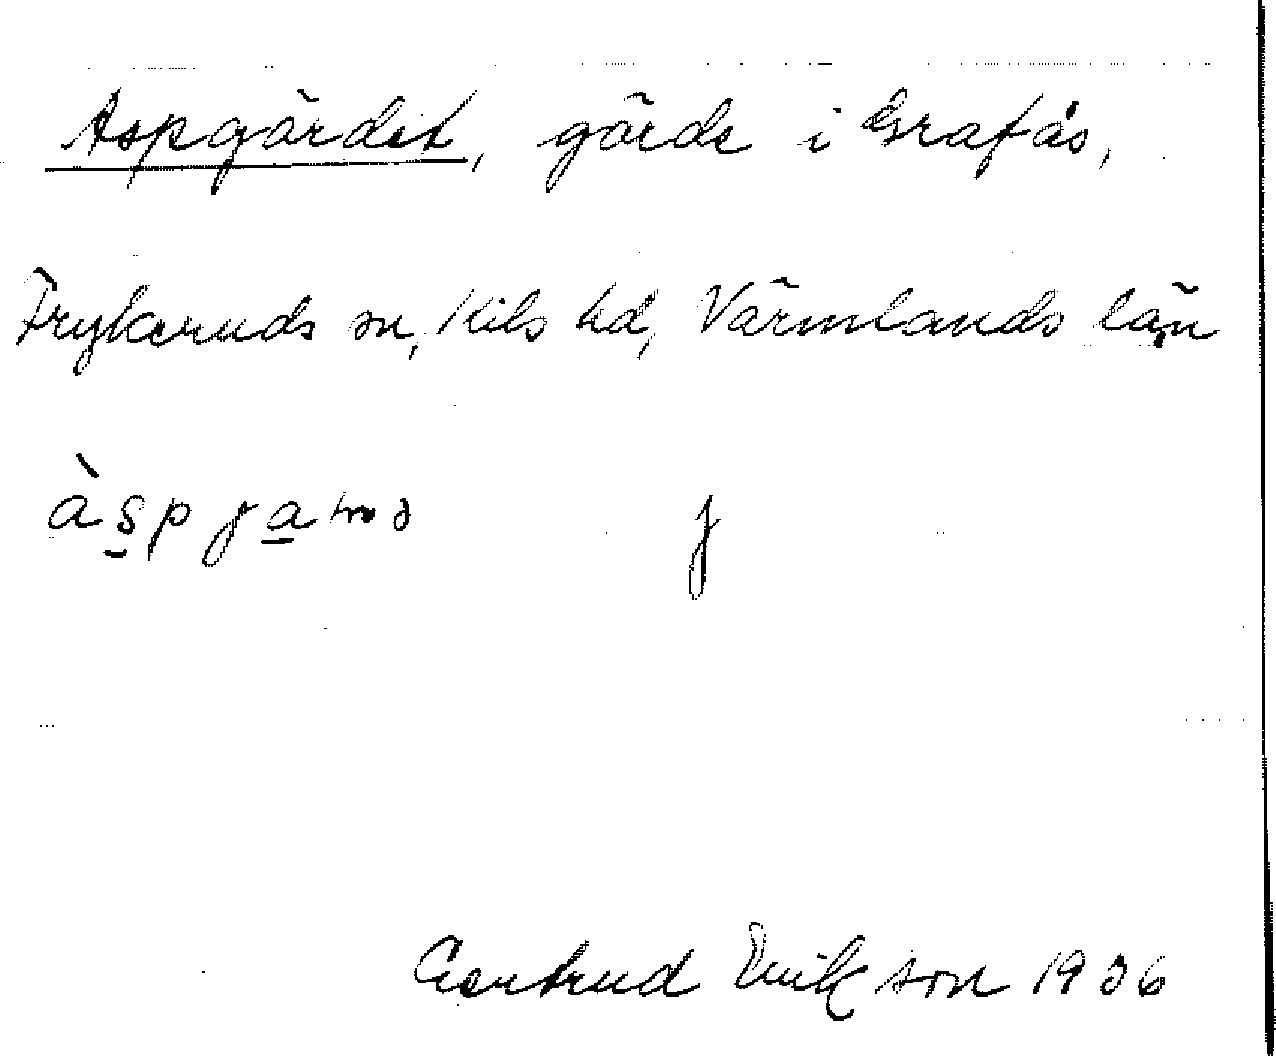 Aspgärdet, gärde i Grafås,
Frykeruds sn, Kils hd, Värmlands län
j
Gertrud Erikson 1936